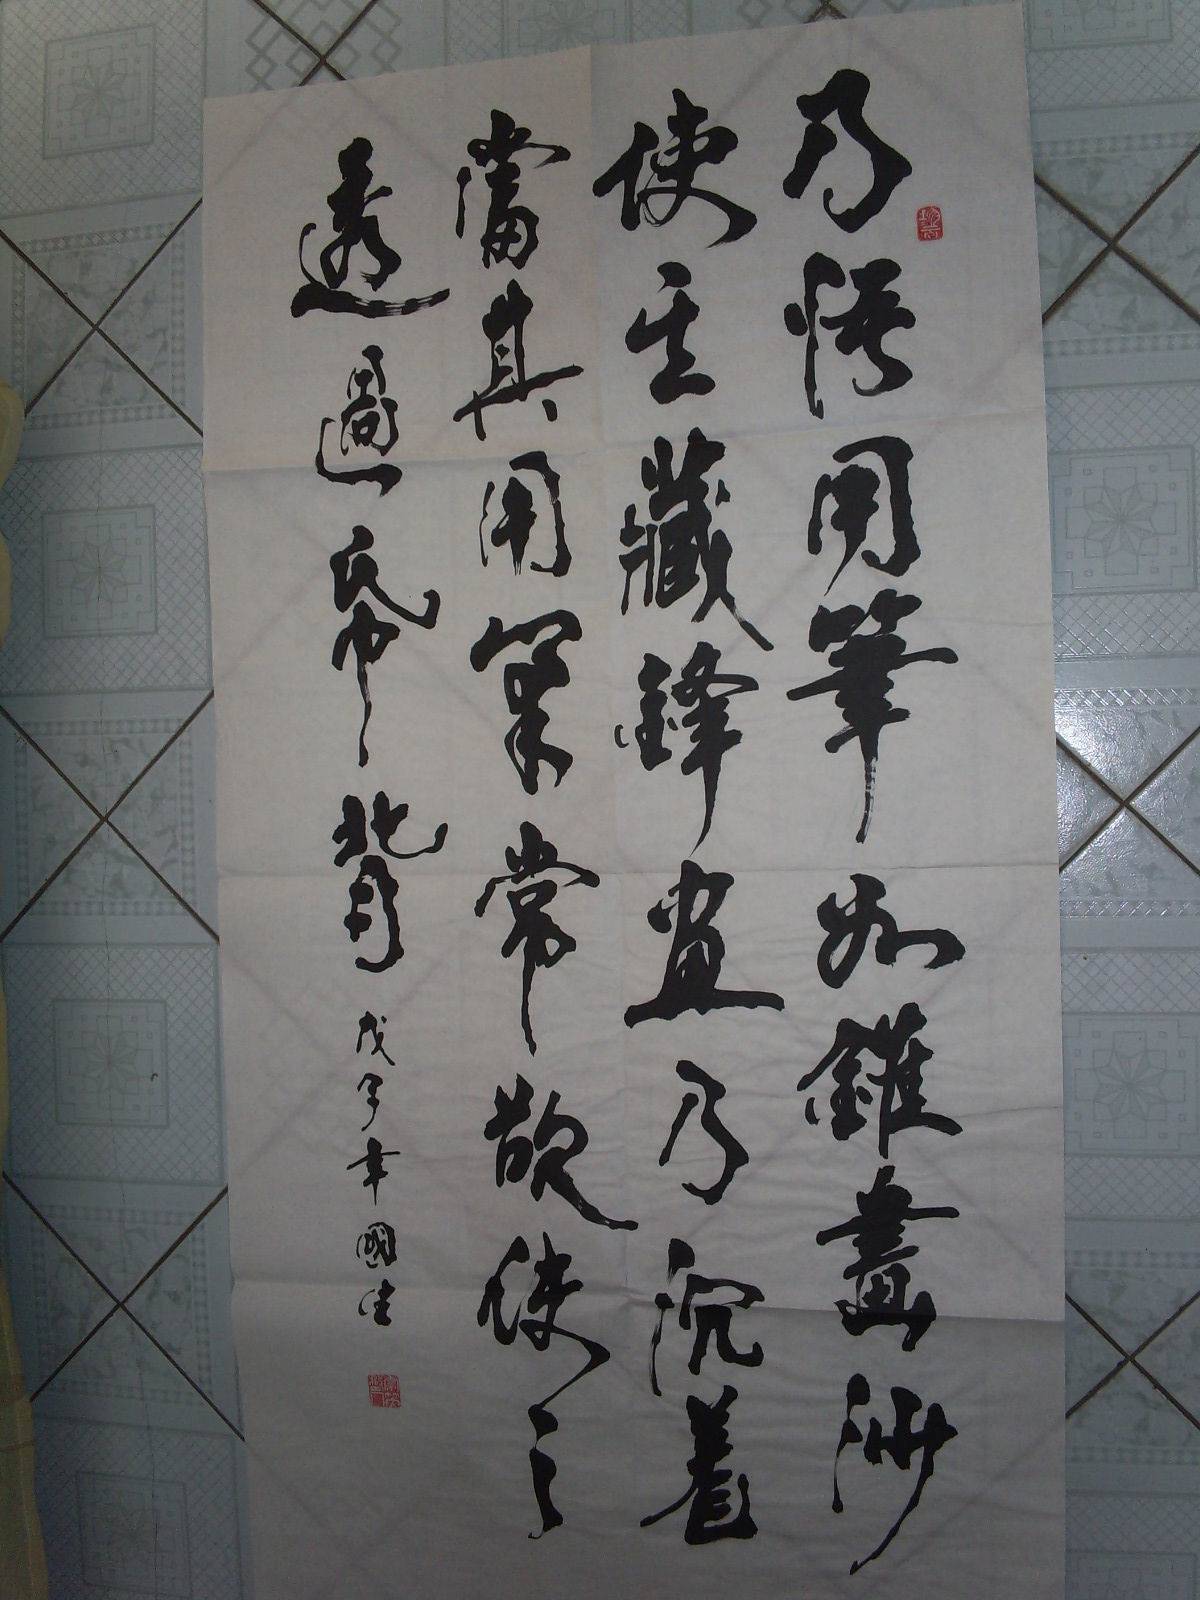 乃悟用筆如錐畫沙
使其藏鋒畫乃沉着
當其用筆常欲使之
透過帋背
戊子年國佳